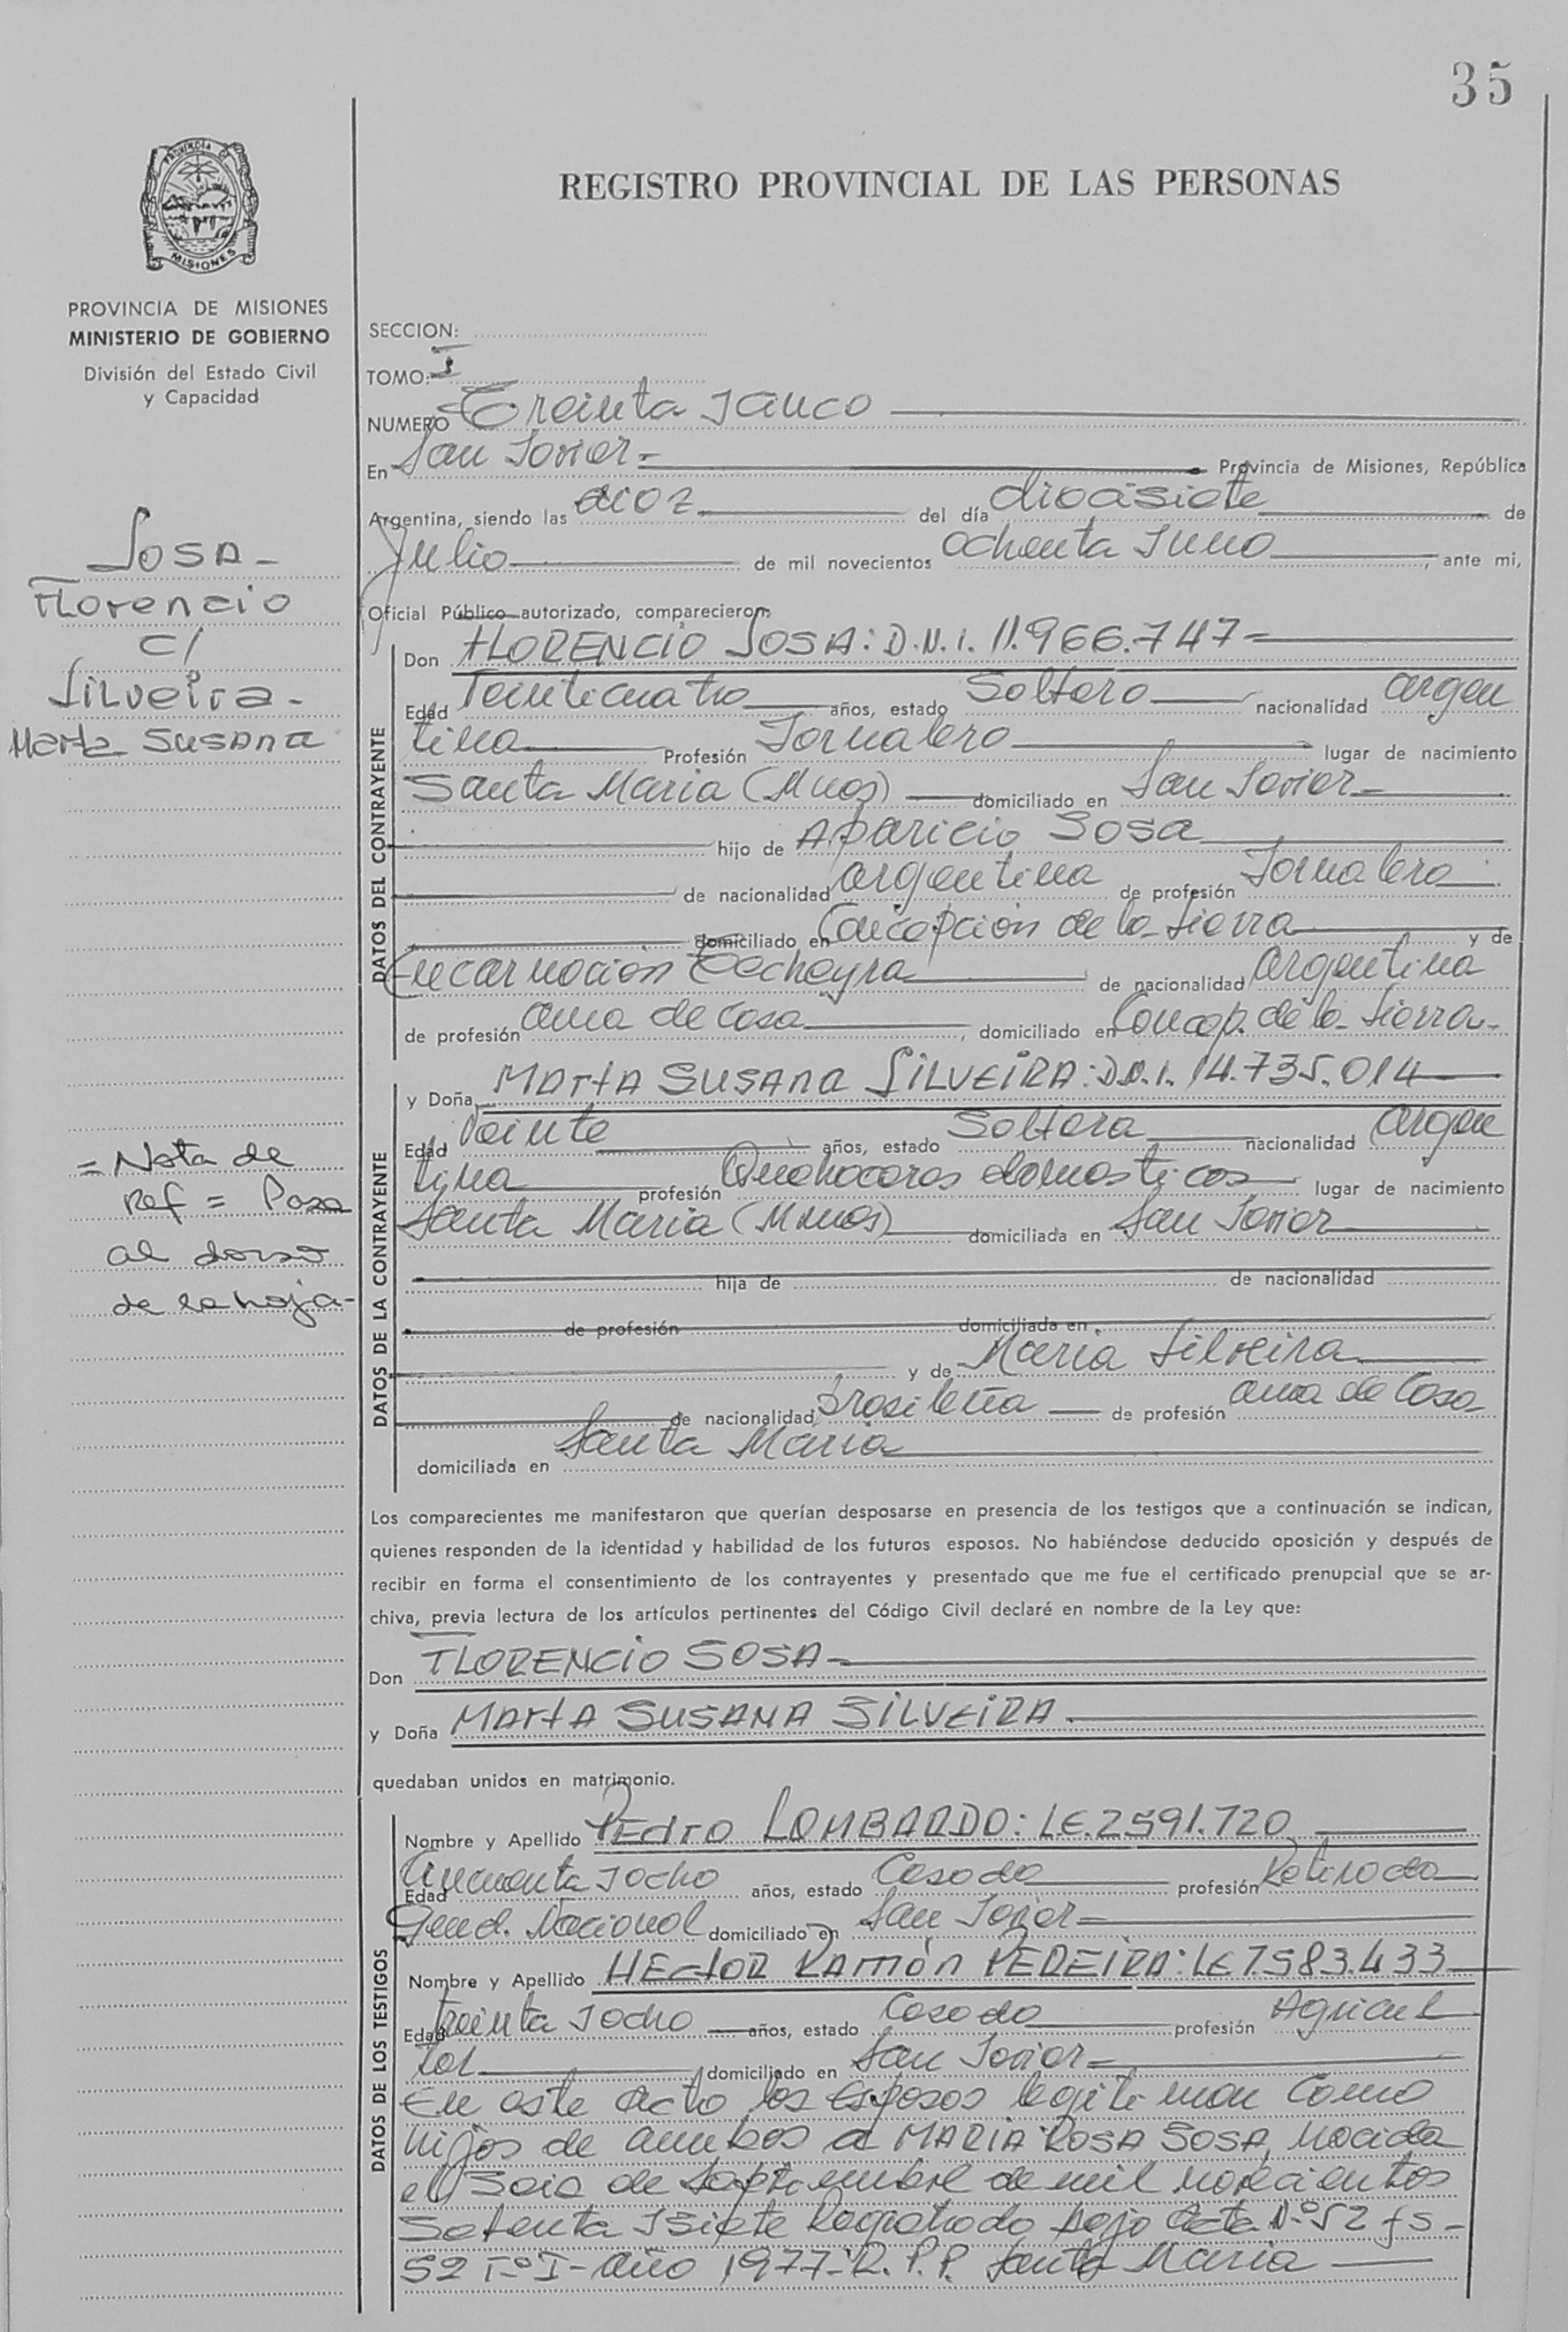 35
PROVINCIA
MISIONES
REGISTRO PROVINCIAL DE LAS PERSONAS
PROVINCIA DE MISIONES
MINISTERIO DE GOBIERNO
División del Estado Civil
y Capacidad
SECCION:
TOMO: I
NUMERO Treinta Icinco
En San Javier = Provincia de Misiones, República
Argentina, siendo las diez del día diecisiete de
Julio de mil novecientos ochenta Iuno, ante mi,
Oficial Público autorizado, comparecieron:
Sosa -
Florencio
C/
Silveira -
Marta Susana
DATOS DEL CONTRAYENTE
Don FLORENCIO SOSA: D.N.I. 11.966.747 =
Edad Veinticuatro años, estado Soltero nacionalidad argen
tina Profesión Jornalero lugar de nacimiento
Santa Maria (Mnes) domiciliado en San Javier
hijo de Aparicio Sosa
de nacionalidad argentina de profesión Jornalero
domiciliado en Concepción de la Sierra y de
Encarnación de nacionalidad argentina
de profesión ama de Casa, domiciliado en Concep. de la Sierra -
DATOS DE LA CONTRAYENTE
y Doña MArtA SUSAna SILVEIRA: D.N.I. 14.735.014
Edad Veinte años, estado Soltera nacionalidad Argen
tina profesión Quehaceres domesticos lugar de nacimiento
Santa Maria (Mnes) domiciliada en San Javier
hija de de nacionalidad
de profesión domiciliada en
y de Maria Silveira
de nacionalidad brasileña de profesión ama de Casa
domiciliada en Santa Maria
= Nota de
Ref = Pasa
al dorso
de la hoja -
Los comparecientes me manifestaron que querían desposarse en presencia de los testigos que a continuación se indican,
quienes responden de la identidad y habilidad de los futuros esposos. No habiéndose deducido oposición y después de
recibir en forma el consentimiento de los contrayentes y presentado que me fue el certificado prenupcial que se ar-
chiva, previa lectura de los artículos pertinentes del Código Civil declaré en nombre de la Ley que:
Don FLORENCIO SOSA -
y Doña MArtA SUSANA SILVEIRA
quedaban unidos en matrimonio.
DATOS DE LOS TESTIGOS
Nombre y Apellido PEdrO LOMBARDO: LE. 2591.720
Edad Cincuenta Iocho años, estado Casado profesión Retirado
Gend. Nacional domiciliado en San Javier =
Nombre y Apellido HEctOR RAmón PEREIRA: LE 7583.433
Edad treinta Iocho años, estado Casado profesión Agricul
tor domiciliado en San Javier =
En este acto los Esposos legitiman Como
hijos de ambos a MARIA ROSA SOSA, nacida
el Seis de Septiembre de mil novecientos
Setenta Isiete Registrado bajo Acta Nº 52 fs -
52 Tº I - año 1977 - R. P. P. Santa Maria